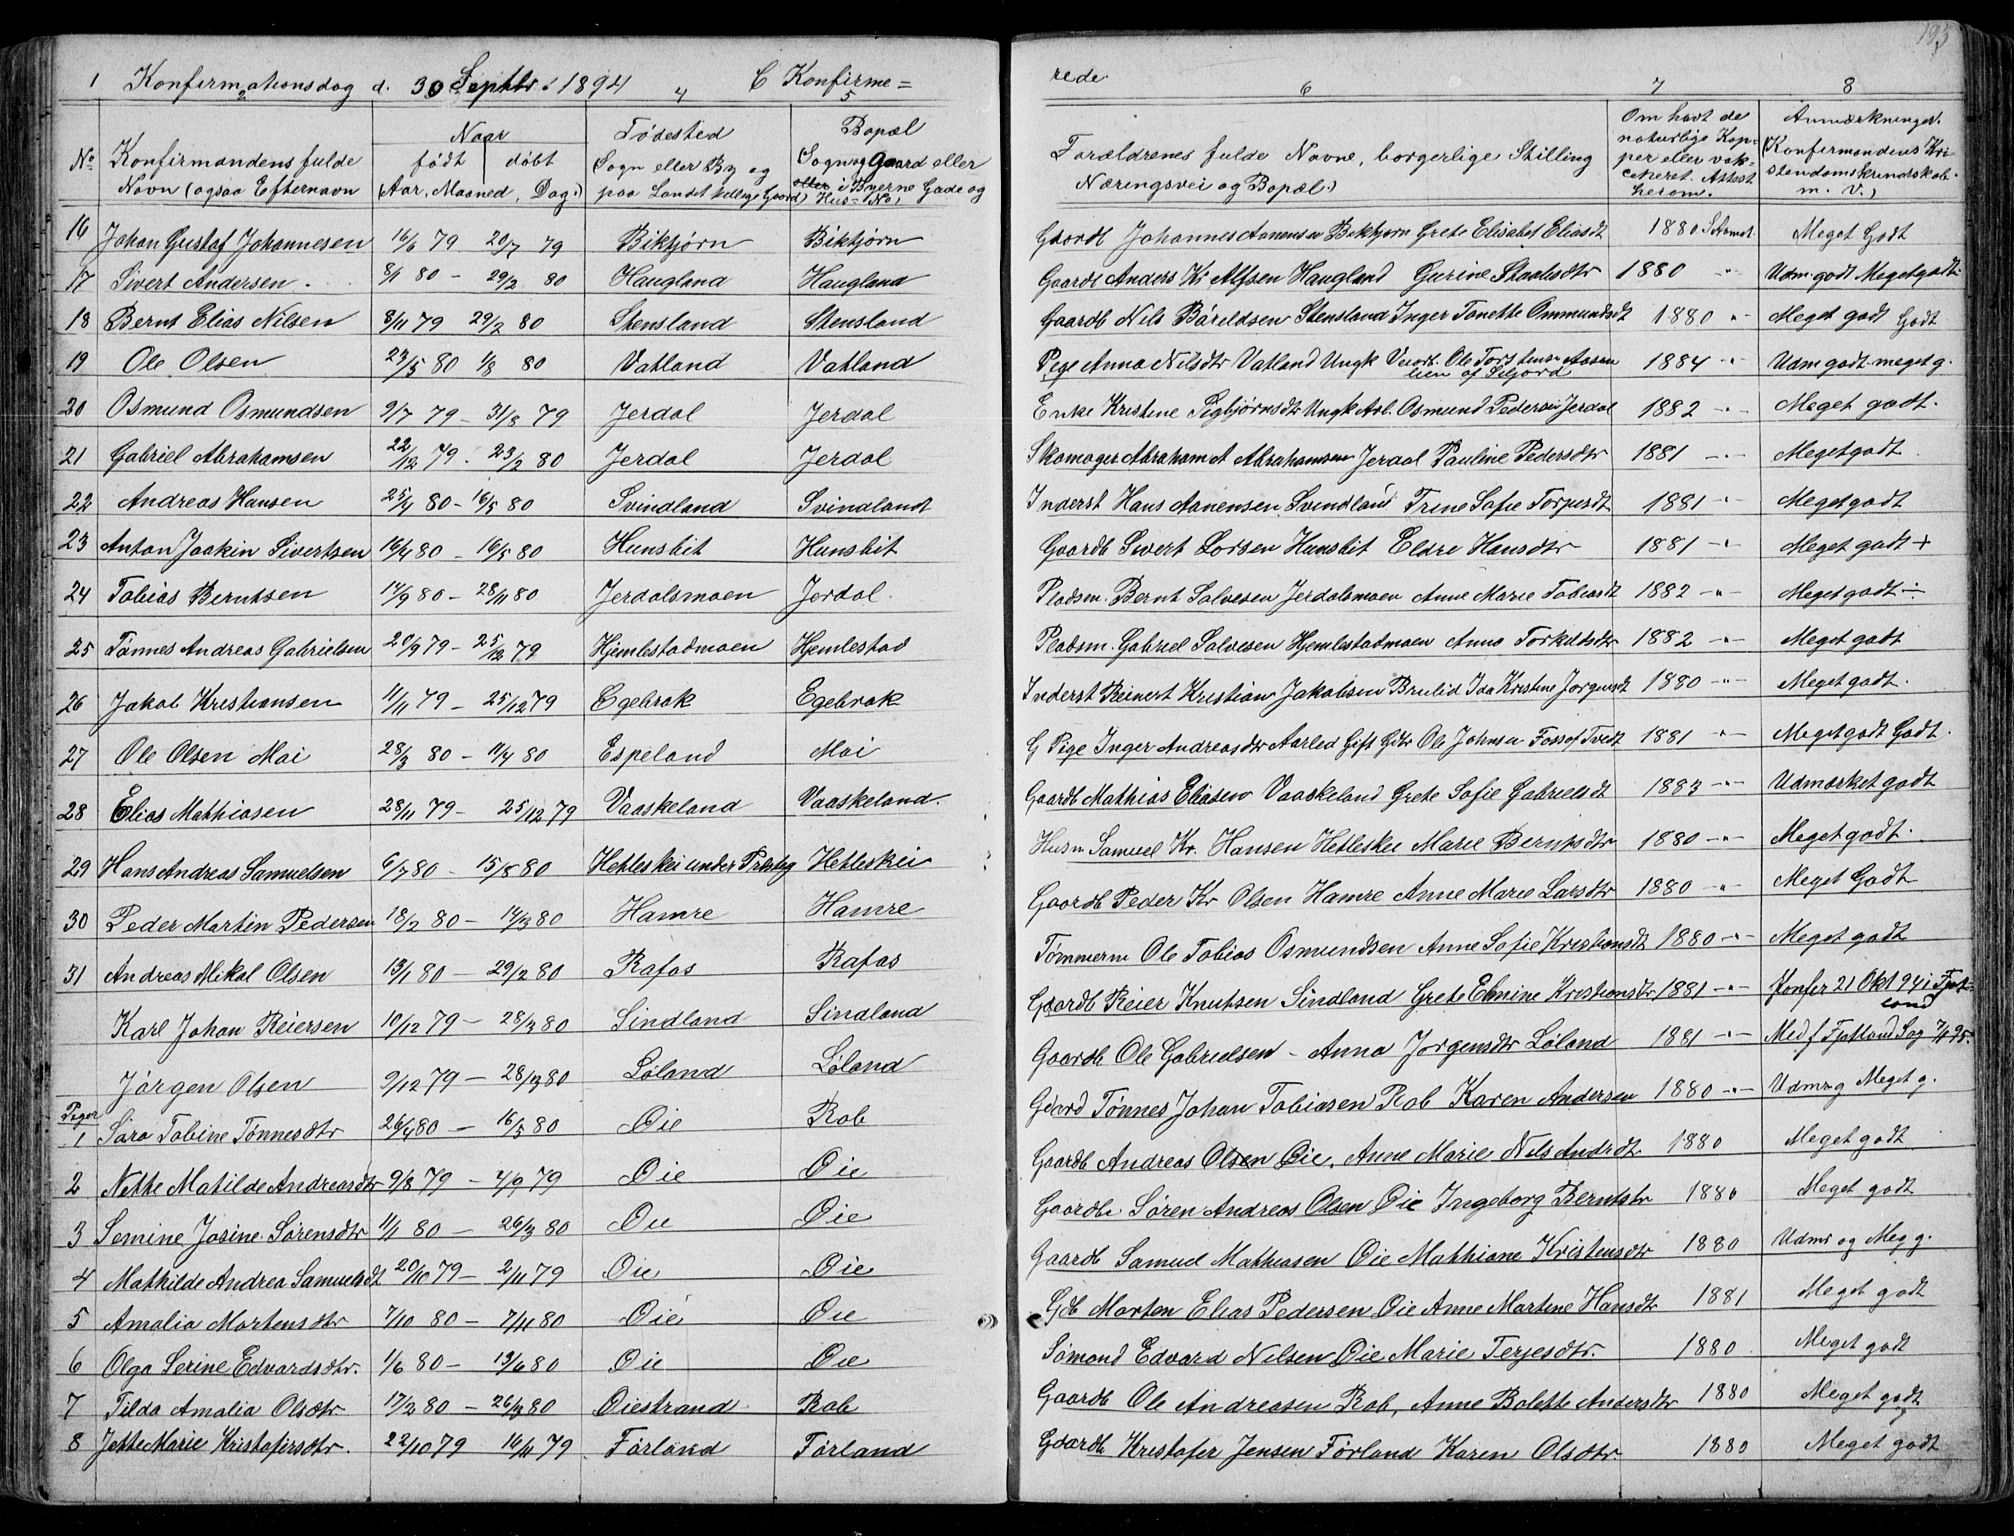 193
Konfirmationsdag d. 30 Septbr. 1894 C Konfirme=
rede.
1 2 4 5 6 7 8
No Konfirmandens fulde Navn (ogsaa Efternavn
Naar født døbt (Aar, Maaned, Dag.)
Fødested Sogn eller By og paa Landet tillige Gaard)
Bopæl Sogn og Gaard eller eller i Byerne Gade og Hus-No)
Forældrenes fulde Navne, borgerlige Stilling Næringsvei og Bopæl.)
Om havt de naturlige Kopper eller vakcineret. Attest herom.
Anmærkninger. (Konfirmandens Kristendomskundskab m. V.)
16 Johan Gustaf Johannesen 16/6 79 20/7 79 Bikbjørn Bikbjørn Gaardb Johannes Aanensen Bikbjørn Grete Elisabet Eliasdt 1880 Meget Godt
17 Sivert Andersen 8/1 80 - 29/2 80 Haugland Haugland Gaardb Anders Kr Alfsen Haugland Gurine Staalesdtr 1880 " Udm godt Meget godt
18 Bernt Elias Nilsen 8/11 79 29/2 80 Stensland Stensland Gaardb Nils Bårildsen Stensland Inger Tonette Ommundsdt 1880 " Meget godt Godt
19 Ole Olsen 23/5 80 1/8 80 Vatland Vatland Pige Anna Nilsdtr Vatland Ungk Ole Torstensen Aasen lien af Siljord 1884 " Udm godt meget g.
20 Osmund Osmundsen 9/7 79 - 31/8 79 Jerdal Jerdal Enke Kristine Sigbjørnsdtr Ungk Arb. Osmund Pedersen Jerdal 1882 " Meget godt.
21 Gabriel Abrahamsen 22/12 79. 23/2 80 Jerdal Jerdal Skomager Abraham A Abrahamsen Jerdal Pauline Pedersdtr 1881 " Meget godt
22 Andreas Hansen 25/4 80 - 16/5 80 Svindland Svindland Inderst Hans Aanensen Svindland Trine Sofie Torgersdt 1881 " Meget godt
23 Anton Joakin Sivertsen 16/4 80 - 16/5 80 Hunsbit Hunsbit Gaardb Sivert Larsen Hunsbit Eldre Hansdtr 1881 " Meget godt +
24 Tobias Berntsen 14/9 80 - 28/11 80 Jerdalsmoen Jerdal. Pladsm. Bernt Salvesen Jerdalsmoen Anne Marie Tobiasdt 1882 " Meget godt ÷
25 Tønnes Andreas Gabrielsen 20/9 79 - 25/12 79 Hjemlestadmoen Hjemlestad Pladsm. Gabriel Salvesen Hjemlestadmoen Anna Torkildsdtr 1882 " Meget godt
26 Jakob Kristiansen 11/11 79 - 25/12 79 Egebrok Egebrok Inderst Reinert Kristian Jakobsen Brulid Ida Kristine Jørgensdt 1880 " Meget godt.
27 Ole Olsen Moi 28/3 80 - 11/4 80 Espeland Moi G Pige Inger Andreasdtr Aarlea Gift Gdbr Ole Johnsen Foss af Tvedt 1881 " Meget godt Godt.
28 Elias Mathiasen 28/11 79 - 25/12 79 Vaaskeland Vaaskeland. Gaardb Mathias Eliasen Vaaskeland Grete Sofie Gabrielsdt 1883 " Udmærket godt
29 Hans Andreas Samuelsen 6/7 80 - 15/8 80 Hetleskei under Hetleskei Husm Samuel Kr. Hansen Hetleskei Marie Berntsdtr 1880 " Meget godt.
30 Peder Martin Pedersen 18/2 80 - 14/3 80 Hamre Hamre Gaardb Peder Kr Olsen Hamre Anne Marie Larsdtr 1880 " Meget Godt
31 Andreas Mikal Olsen 13/1 80 - 29/2 80 Rafos Rafos Tømmerm Ole Tobias Osmundsen Anne Sofie Kristiansdt 1880 " Meget godt
Karl Johan Reiersen 10/12 79 - 28/3 80 Sindland Sindland Gaardb Reier Knutsen Sindland Grete Elmine Kristiansdtr 1881 " Konfir 21 Okt 94 i Fjotland
Jørgen Olsen 9/12 79 - 28/3 80 Løland Løland Gaardb Ole Gabrielsen - Anna Jørgensdtr Løland 1881 " Med f Fjotland Sog
Piger
1 Sara Tobine Tønnesdtr 26/4 80 - 16/5 80 Øie Rob Gaard Tønnes Johan Tobiasen Rob Karen Andersen 1880 " Udm og Meget g.
2 Nette Matilde Andreasdtr 9/8 79 - 4/9 79 Øie Øie Gaardb Andreas Olsen Øie. Anne Marie Nils Andrdt 1880 Meget godt
3 Semine Josine Sørensdtr 11/1 80 - 26/3 80 Øie Øie Gaardbr. Søren Andreas Olsen Øie Ingeborg Berntsdtr 1880 Meget godt
4 Mathilde Andrea Samuelsdt 20/10 79 - 2/11 79 Øie Øie Gaardb Samuel Mathiasen Øie Mathiane Kristensdtr 1880 Udm og Meg g.
5 Amalia Mortensdtr 7/10 80 - 7/11 80 Øie Øie Gdb Morten Elias Pedersen Øie Anne Martine Hansdtr 1881 Meget godt
6 Olga Serine Edvardsdtr. 1/6 80 - 13/6 80 Øie Øie Sømand Edvard Nilsen Øie Marie Terjesdtr. 1880 Meget godt
7 Tilda Amalia Olsdtr 17/2 80 - 26/3 80 Øiestrand Rob Gaardb Ole Andreasen Rob, Anne Bolette Andersdtr 1880 Meget godt
8 Jette Marie Kristofersdtr. 22/10 79 16/11 79 Førland Førland Gaardb Kristofer Jensen Førland Karen Olsdtr. 1880 Meget godt